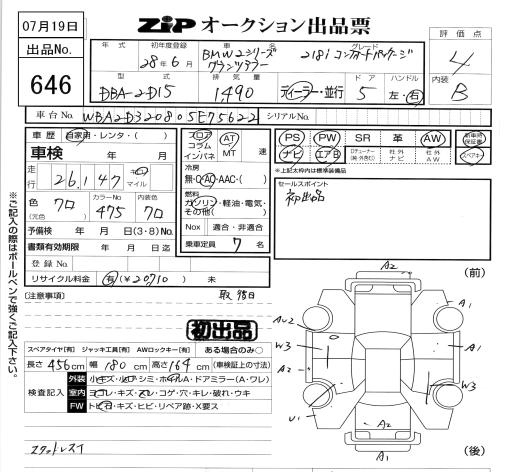 07月19日
出品No.
646
ZIPオークション出品票
評価点
4
内装
B
年式
初年度登録
28年6月
車名
BMW2シリーズ
グランツアラー
グレード
218i コンフォートパッケージ
型式
DBA-2D15
排気量
1,490
ディーラー・並行
ドア
5
ハンドル
左・右
車台No.
WBA2D320805E75622
シリアルNo.
車歴 自家用・レンタ・( )
車検 年 月
走行
26,147
km
マイル
色
(元色)
クロ
カラーNo
475
内装色
クロ
予備検 年 月 日(3・8)No.
書類有効期限 年 月 日迄
登録No.
リサイクル料金 有(¥20710) 未
フロア
コラム
インパネ
AT
MT
速
冷房
無・C・AC・AAC・( )
燃料
ガソリン・軽油・電気・
その他( )
Nox 適合・非適合
乗車定員 7 名
PS PW SR 革 AW
新車時
保証書
ナビ エアB
社外
ナビ
社外
AW
スペアキー
※上記太枠内は標準装備品
セールスポイント
初出品
※ご記入の際はボールペンで強くご記入下さい。
[注意事項]
初出品
スペアタイヤ[有] ジャッキ工具[有] AWロックキー[有] ある場合のみ○
長さ 456cm 幅 180cm 高さ 164cm (車検証上の寸法)
検査記入
外装 小キズ・小凹・シミ・ホイルA・ドアミラー(A・ワレ)
室内 ヨゴレ・キズ・スレ・コゲ・穴・キレ・破れ・ウキ
FW トビ石・キズ・ヒビ・リペア跡・X要ス
スタットレス
(前)
A2
A1
AU2
W3
A1
A2
W3
U1
A2
A1
(後)